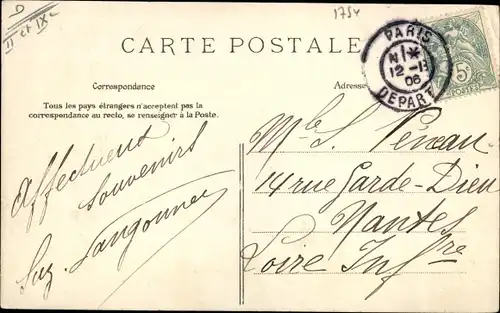 D
II et IXe
1754
CARTE POSTALE
PARIS
N 1 *
12 -11
06
DEPART
5c
Correspondance
Adresse
Tous les pays étrangers n'acceptent pas la
correspondance au recto, se renseigner à la Poste.
Affectueux
Souvenirs
Suz. Langonnet
Mlle S. Péneau
14 rue Garde-Dieu
Nantes
Loire Infre